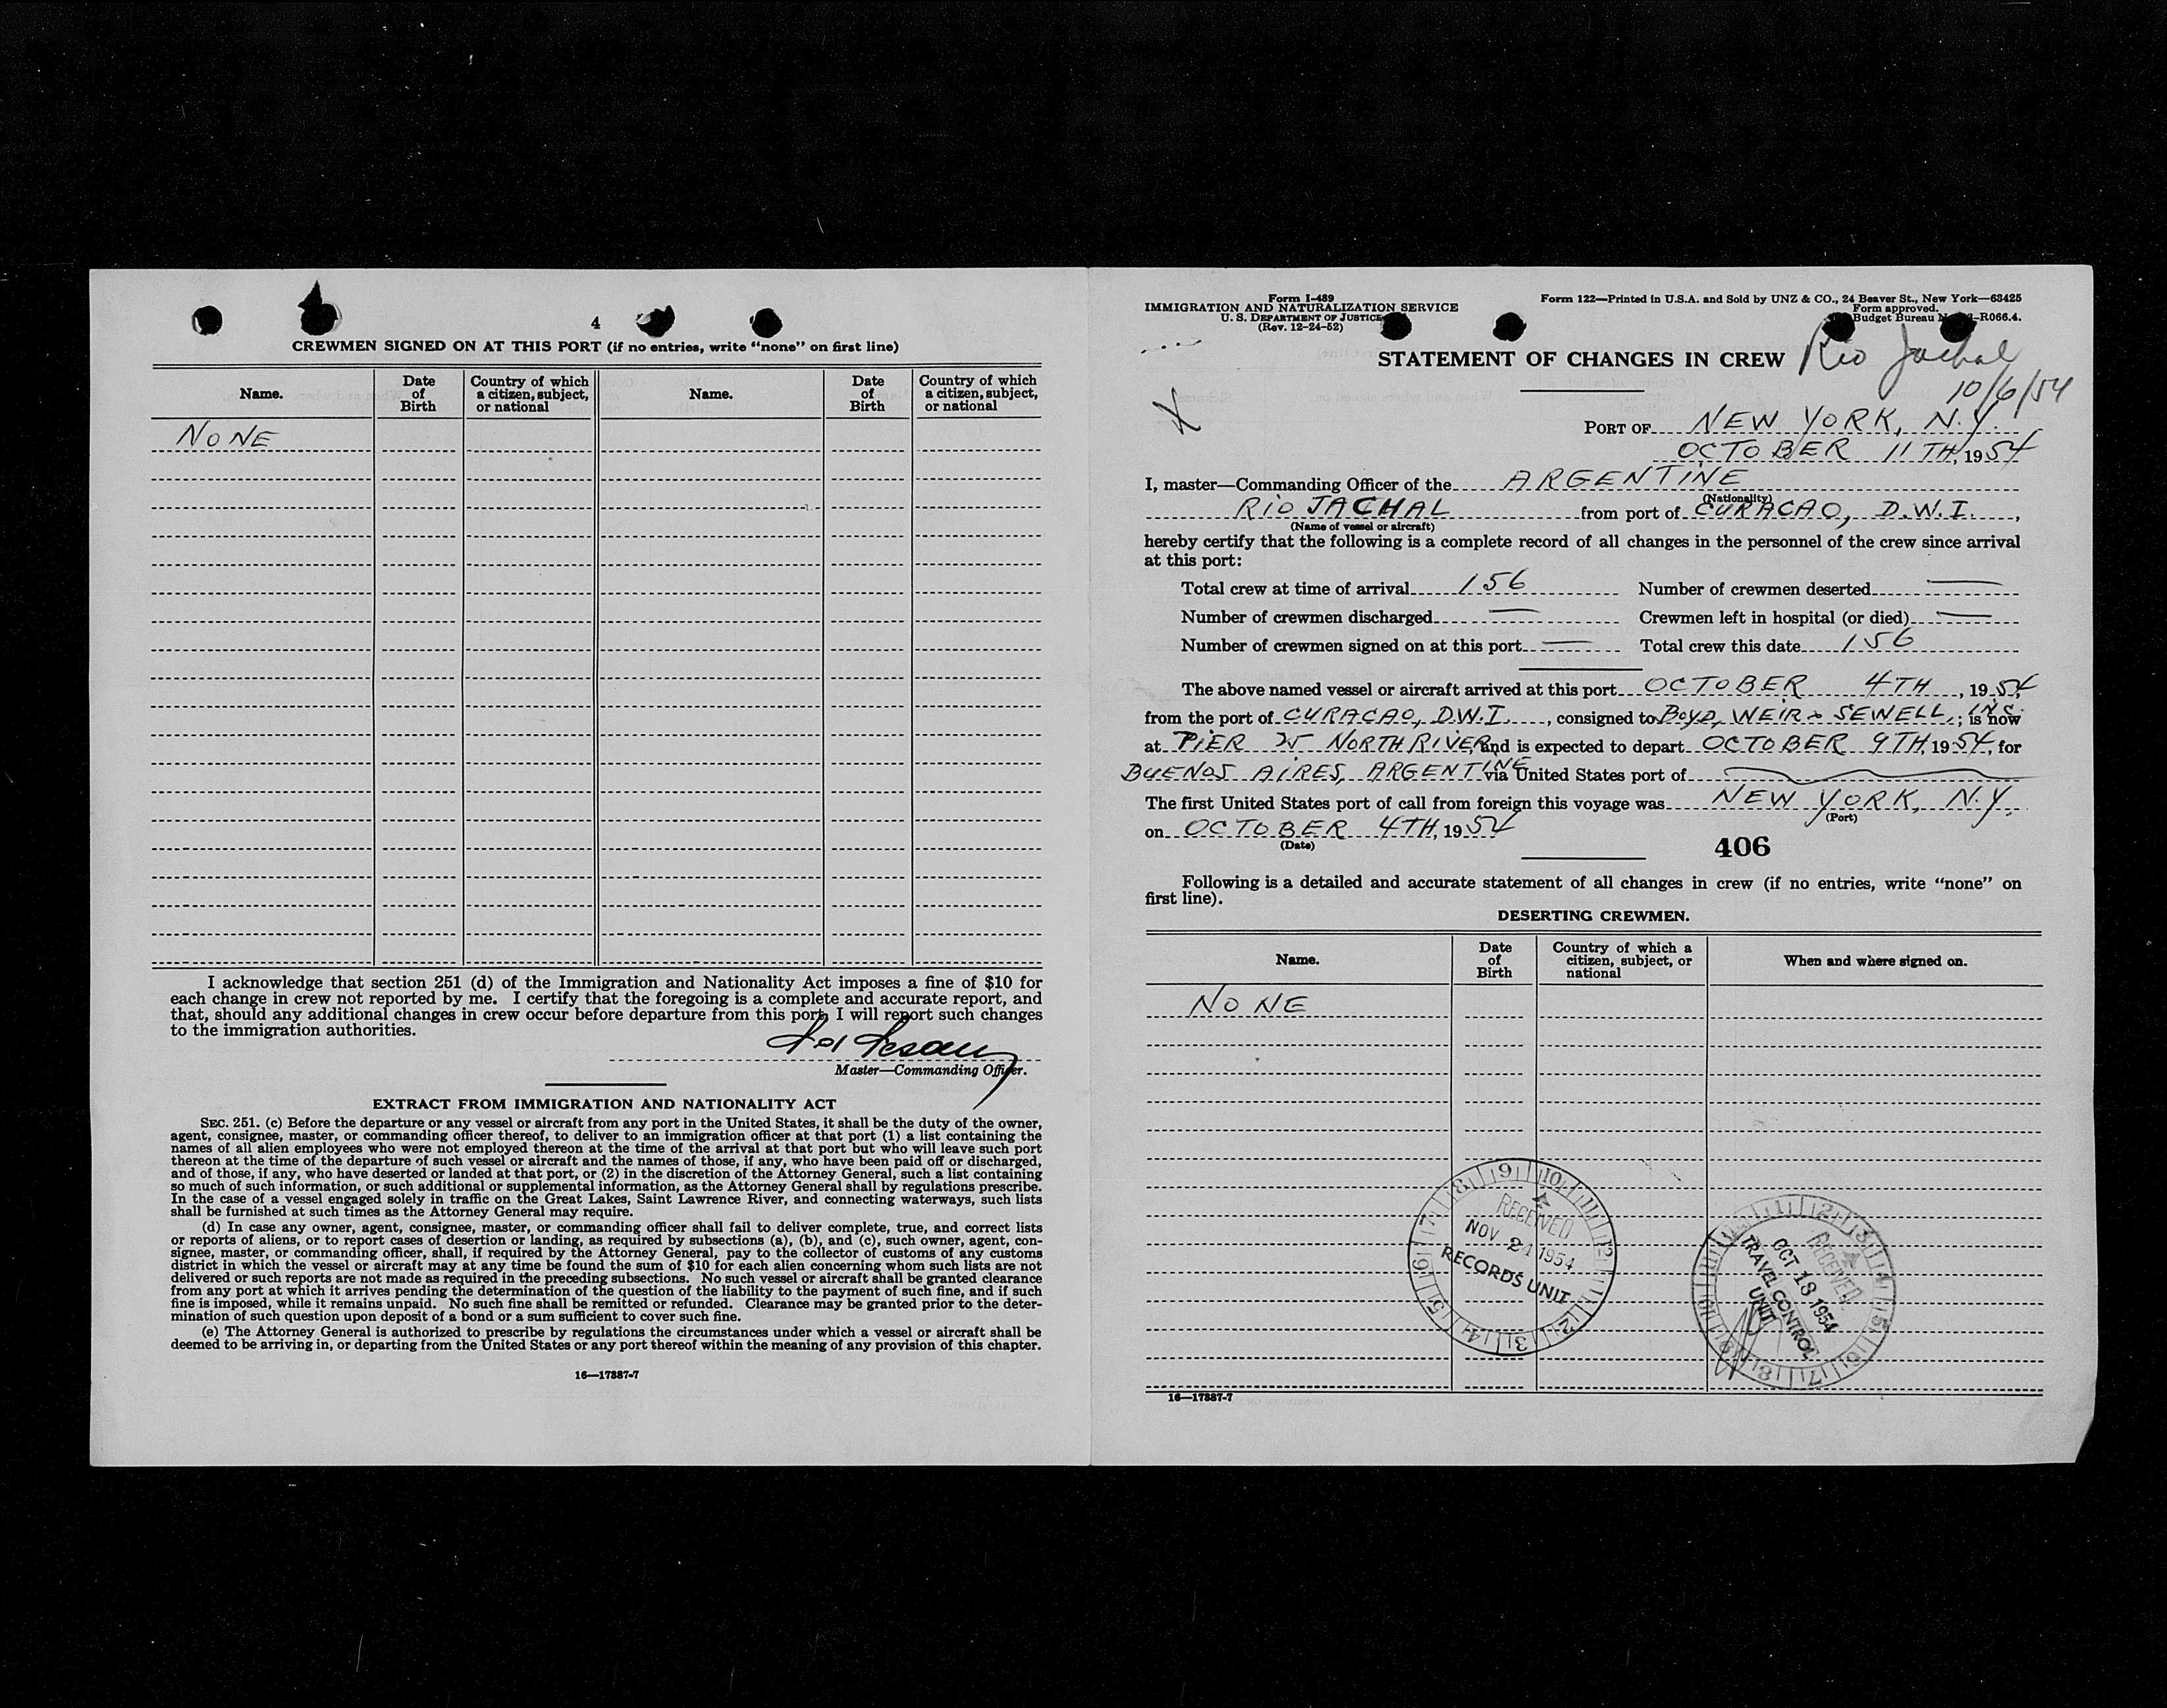 4
CREWMEN SIGNED ON AT THIS PORT (if no entries, write "none" on first line)
Name. Date of Birth Country of which a citizen, subject, or national Name. Date of Birth Country of which a citizen, subject, or national
NONE
I acknowledge that section 251 (d) of the Immigration and Nationality Act imposes a fine of $10 for
each change in crew not reported by me. I certify that the foregoing is a complete and accurate report, and
that, should any additional changes in crew occur before departure from this port, I will report such changes
to the immigration authorities.
Master—Commanding Officer.
EXTRACT FROM IMMIGRATION AND NATIONALITY ACT
SEC. 251. (c) Before the departure or any vessel or aircraft from any port in the United States, it shall be the duty of the owner,
agent, consignee, master, or commanding officer thereof, to deliver to an immigration officer at that port (1) a list containing the
names of all alien employees who were not employed thereon at the time of the arrival at that port but who will leave such port
thereon at the time of the departure of such vessel or aircraft and the names of those, if any, who have been paid off or discharged,
and of those, if any, who have deserted or landed at that port, or (2) in the discretion of the Attorney General, such a list containing
so much of such information, or such additional or supplemental information, as the Attorney General shall by regulations prescribe.
In the case of a vessel engaged solely in traffic on the Great Lakes, Saint Lawrence River, and connecting waterways, such lists
shall be furnished at such times as the Attorney General may require.
(d) In case any owner, agent, consignee, master, or commanding officer shall fail to deliver complete, true, and correct lists
or reports of aliens, or to report cases of desertion or landing, as required by subsections (a), (b), and (c), such owner, agent, con-
signee, master, or commanding officer, shall, if required by the Attorney General, pay to the collector of customs of any customs
district in which the vessel or aircraft may at any time be found the sum of $10 for each alien concerning whom such lists are not
delivered or such reports are not made as required in the preceding subsections. No such vessel or aircraft shall be granted clearance
from any port at which it arrives pending the determination of the question of the liability to the payment of such fine, and if such
fine is imposed, while it remains unpaid. No such fine shall be remitted or refunded. Clearance may be granted prior to the deter-
mination of such question upon deposit of a bond or a sum sufficient to cover such fine.
(e) The Attorney General is authorized to prescribe by regulations the circumstances under which a vessel or aircraft shall be
deemed to be arriving in, or departing from the United States or any port thereof within the meaning of any provision of this chapter.
16—17887-7
Form I-489
IMMIGRATION AND NATURALIZATION SERVICE
U. S. DEPARTMENT OF JUSTICE
(Rev. 12-24-52)
Form 122—Printed in U.S.A. and Sold by UNZ & CO., 24 Beaver St., New York—63425
Form approved.
Budget Bureau -R066.4.
STATEMENT OF CHANGES IN CREW Rio Jachal
10/6/54
PORT OF NEW YORK, N.Y.
OCTOBER 11TH, 1954
I, master—Commanding Officer of the ARGENTINE
(Nationality)
RIO JACHAL from port of CURACAO, D.W.I.,
(Name of vessel or aircraft)
hereby certify that the following is a complete record of all changes in the personnel of the crew since arrival
at this port:
Total crew at time of arrival 156 Number of crewmen deserted —
Number of crewmen discharged — Crewmen left in hospital (or died) —
Number of crewmen signed on at this port — Total crew this date 156
The above named vessel or aircraft arrived at this port OCTOBER 4TH, 1954,
from the port of CURACAO, D.W.I., consigned to BOYD, WEIR & SEWELL, INC.; is now
at PIER 25 NORTH RIVER and is expected to depart OCTOBER 9TH, 1954, for
BUENOS AIRES, ARGENTINE via United States port of
The first United States port of call from foreign this voyage was NEW YORK, N.Y.
(Port)
on OCTOBER 4TH, 1954
(Date)
406
Following is a detailed and accurate statement of all changes in crew (if no entries, write "none" on
first line).
DESERTING CREWMEN.
Name. Date of Birth Country of which a citizen, subject, or national When and where signed on.
NONE
RECEIVED
NOV. 24 1954
RECORDS UNIT
RECEIVED
OCT 18 1954
TRAVEL CONTROL
UNIT
16—17887-7